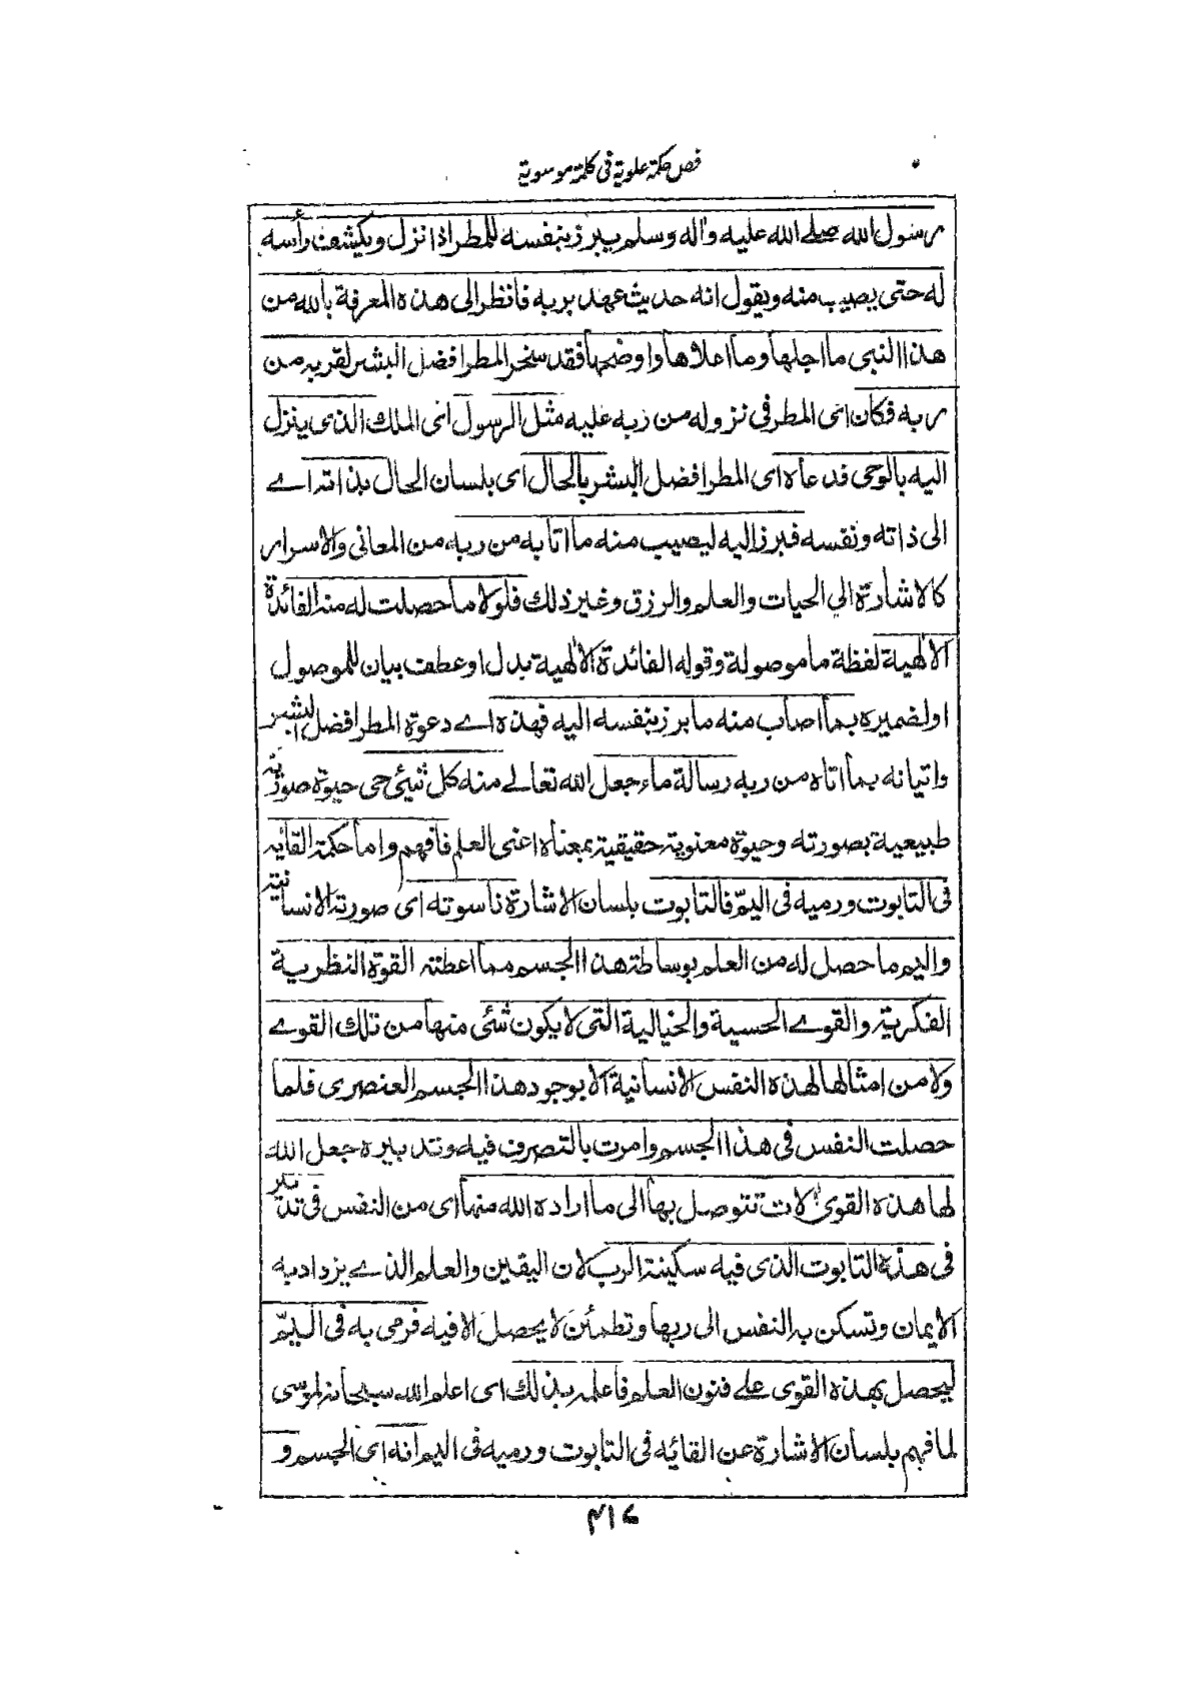 فص حكمة علوية في كلمة موسوية
رسول الله صلے الله عليه واٰله وسلم يبرز بنفسه للمطر اذا نزل ويكشف رأسه
له حتى يصيب منه ويقول انه حديث عهد بربه فانظر الى هذه المعرفة بالله من
هذا النبي ما اجلها وما اعلاها واوضحها فقد سخر المطر افضل البشر لقربه من
ربه فكان اى المطر فى نزوله من ربه عليه مثل الرسول اى الملك الذى ينزل
اليه بالوحى فدعاه اى المطر افضل البشر بالحال اى بلسان الحال بذاته اے
الى ذاته ونفسه فبرز اليه ليصيب منه ما اتا به من ربه من المعانى والاسرار
كالاشارة الي الحيات والعلم والرزق وغير ذلك فلولا ما حصلت له منه الفائدة
الالٰهية لفظة ما موصولة وقوله الفائدة الالٰهية بدل او عطف بيان للموصول
او لضميره بما اصاب منه ما برز بنفسه اليه فهذه اے دعوة المطر افضل البشر
واتيانه بما اتاه من ربه رسالة ماء جعل الله تعالے منه كل شيئ حى حيوة صورية
طبيعية بصورته وحيوة معنوية حقيقية بمعناه اعنى العلم فافهم واما حكمة القائه
فى التابوت ورميه فى اليمّ فالتابوت بلسان الاشارة ناسوته اى صورته الانسانية
واليم ما حصل له من العلم بوساطة هذا الجسم مما اعطته القوة النظرية
الفكرية والقوے الحسية والخيالية التى لا يكون شئ منها من تلك القوے
ولا من امثالها لهذه النفس الانسانية الا بوجود هذا الجسم العنصرى فلما
حصلت النفس فى هذا الجسم وامرت بالتصرف فيه وتدبيره جعل الله
لها هذه القوى اٰلات تتوصل بها الى ما اراده الله منها اى من النفس فى تدبير
فى هذه التابوت الذى فيه سكينة الرب لان اليقين والعلم الذے يزداد به
الايمان وتسكن به النفس الى ربها وتطمئن لا يحصل الا فيه فرمى به فى اليمّ
ليحصل بهذه القوى علے فنون العلم فاعلمه بذلك اى اعلم الله سبحانه لموسى
لما فهم بلسان الاشارة عن القائه فى التابوت ورميه فى اليم انه اى الجسم و
٤١٦